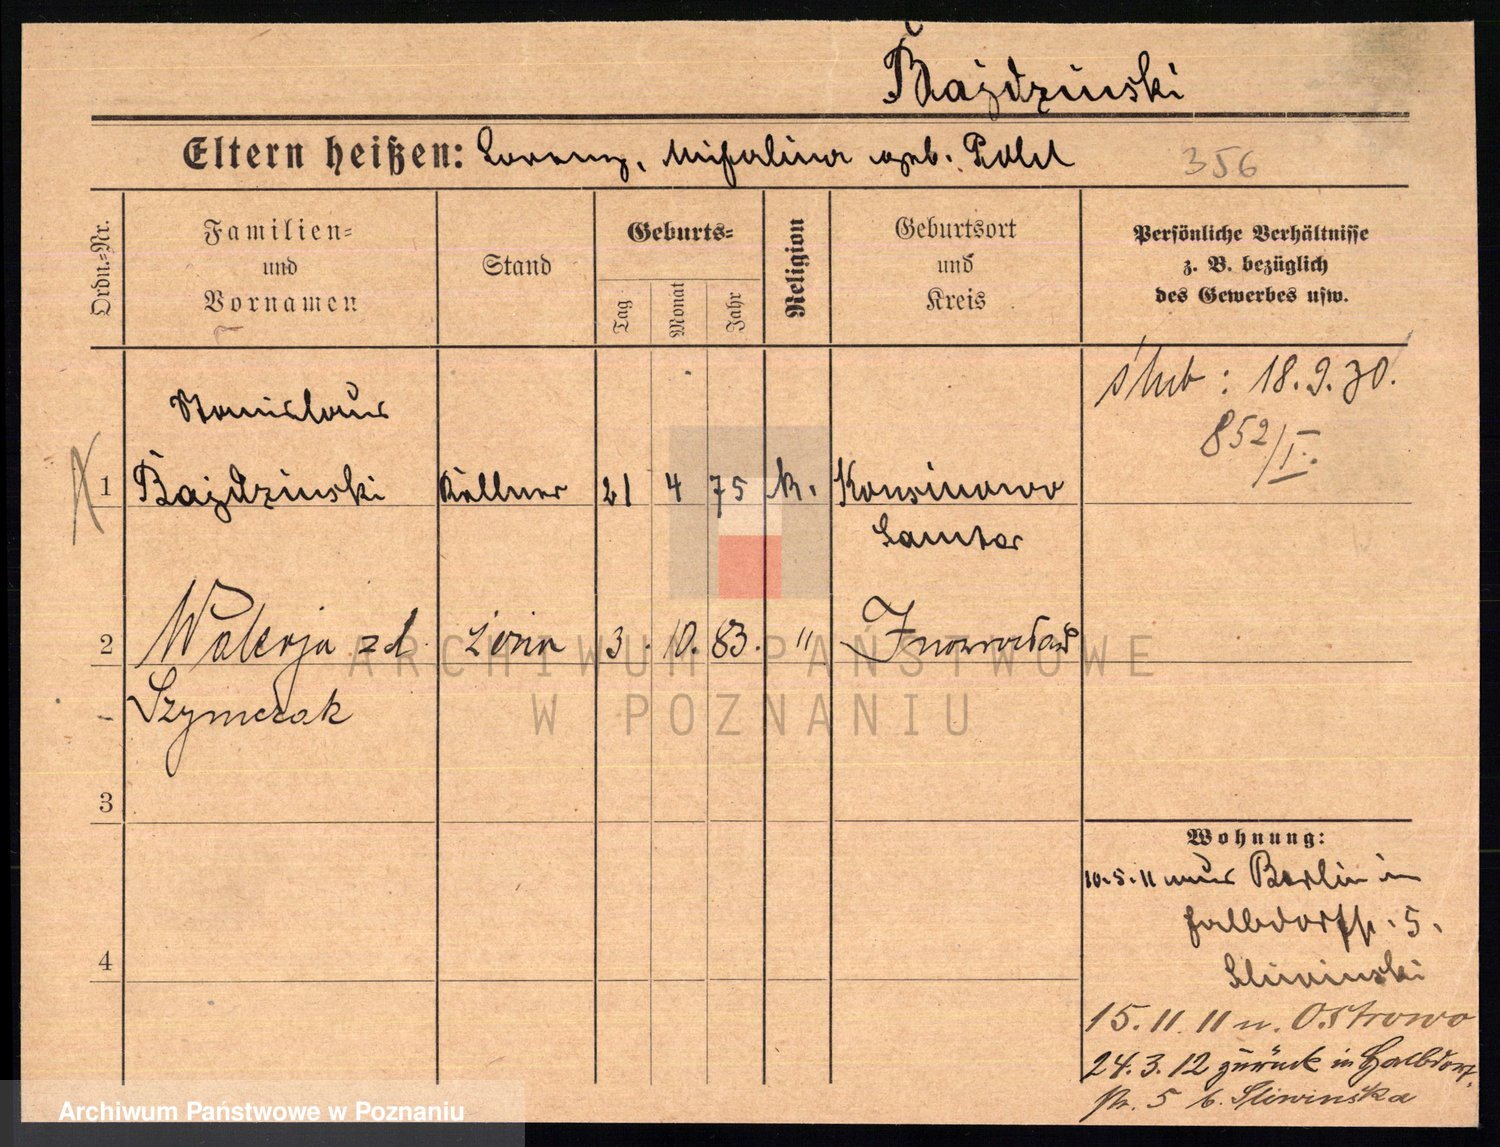 Bajdzinski
Eltern heißen: Lorenz, Michalina geb. Pohl
356
Ordn.-Nr.
Familien-
und
Vornamen
Stand
Geburts-
Tag
Monat
Jahr
Religion
Geburtsort
und
Kreis
Persönliche Verhältnisse
z. B. bezüglich
des Gewerbes usw.
ślub: 18.9.30.
852/I.
Stanislaus
1 Bajdzinski Kellner 21 4 75 k.
Samter
2 Walerja zd żona 3. 10. 83. " Inowrocław
Szymczak
3
4
Wohnung:
10.5.11 aus Berlin in
Halbdorfstr. 5.
Sliwinski
15.11.11 n. Ostrowo
24.3.12 zurück in Halbdorf
str. 5 b. Sliwinska
ARCHIWUM PAŃSTWOWE
W POZNANIU
Archiwum Państwowe w Poznaniu